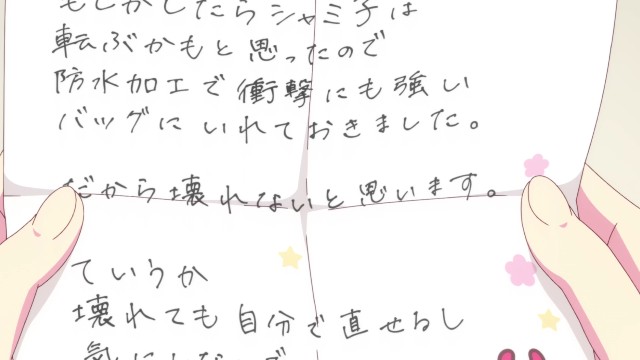 もしかしたらシャミ子は
転ぶかもと思ったので
防水加工で衝撃にも強い
バッグにいれておきました。
だから壊れないと思います。
ていうか
壊れても自分で直せるし
気にしないで